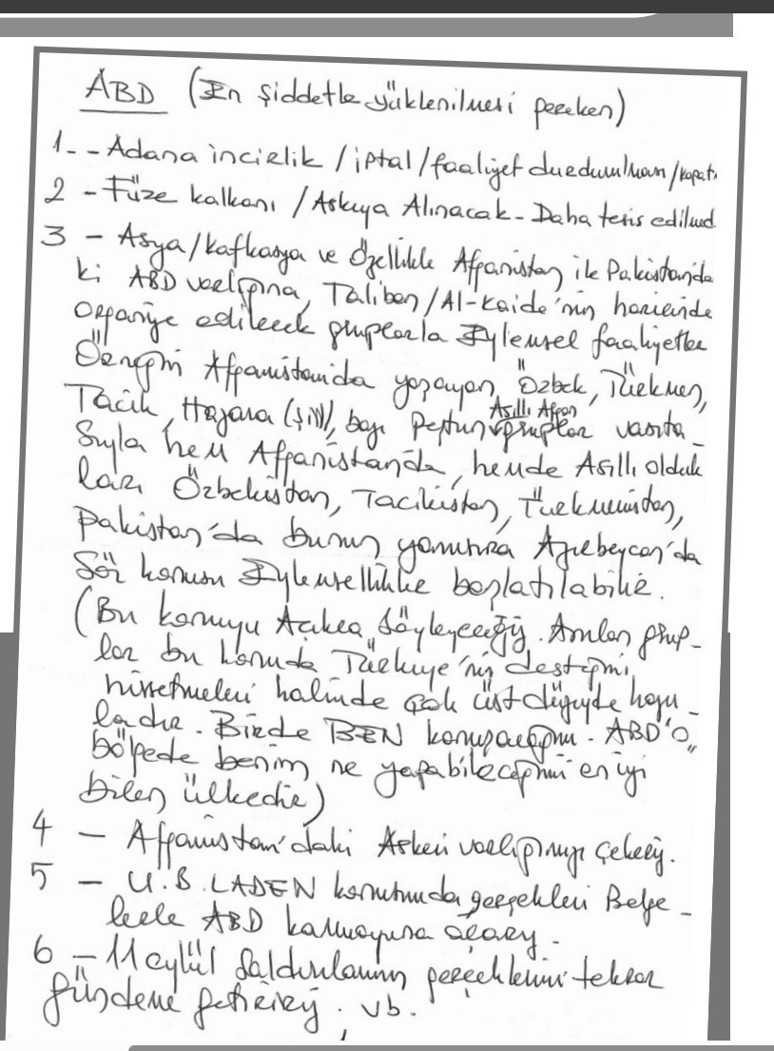 ABD (En şiddetle yüklenilmesi gereken)
1- - Adana incirlik / iptal / faaliyet durdurulması / kapatı
2 - Füze kalkanı / Askıya Alınacak - Daha tesis edilmed
3 - Asya/kafkasya ve Özellikle Afganistan ile Pakistan'da
ki ABD varlığına, Taliban/Al-kaide'nin haricinde
organiye edilecek gruplarla Eylemsel faaliyetler
Örneğin Afganistan'da yaşayan, Özbek, Türkmen,
Tacik, Hazara (şii), bazı Peştun Asıllı Afgan gruplar vasıta-
sıyla hem Afganistan'da, hemde Asıllı olduk
ları Özbekistan, Tacikistan, Türkmenistan,
Pakistan'da bunun yanısıra Azerbeycan'da
Söz konusu Eylemsellikle başlatılabilir.
(Bu konuyu Açıkca Söyleyeceğiz. Anılan grup-
lar bu konuda Türkiye'nin desteğini
hissetmeleri halinde çok üst düzeyde hazır-
ladır. Birde BEN konuşacağım. ABD'O,,
bölgede benim ne yapabileceğimi en iyi
bilen ülkedir)
4 - Afganistan'daki Askeri varlığımızı çekeriz.
5 - U.B. LADEN konusunda gerçekleri Belge-
lerle ABD kamuoyuna açarız.
6 - 11 eylül Saldırılarının gerçeklerini tekrar
gündeme getiririz. vb.